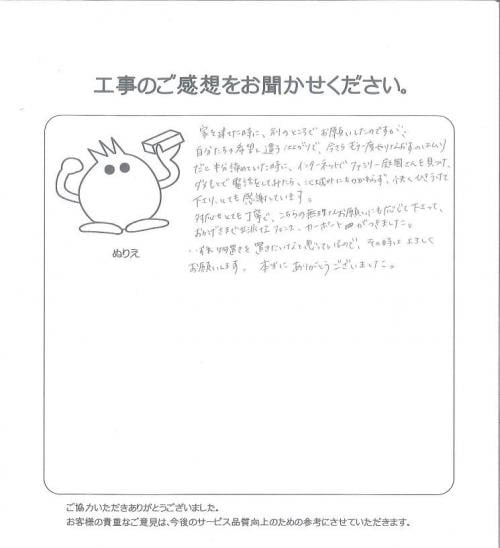 工事のご感想をお聞かせください。
家を建てた時に、別のところでお願いしたのですが、
自分たちの希望と違う仕上がりで、今さらもう一度やりなおすのはムリ
だと半分諦めていた時に、インターネットでファミリー庭園さんを見つけ、
ダメもとで電話をしてみたら、にもかかわらず、快くひきうけて
下さり、とても感謝しています。
対応もとても丁寧で、こちらの無理なお願いにも応じて下さって、
おかげさまで立派なフェンス、カーポートがつきました。
物置きを置きたいなと思っているので、その時はよろしく
お願いします。 本当にありがとうございました。
ぬりえ
ご協力いただきありがとうございました。
お客様の貴重なご意見は、今後のサービス品質向上のための参考にさせていただきます。